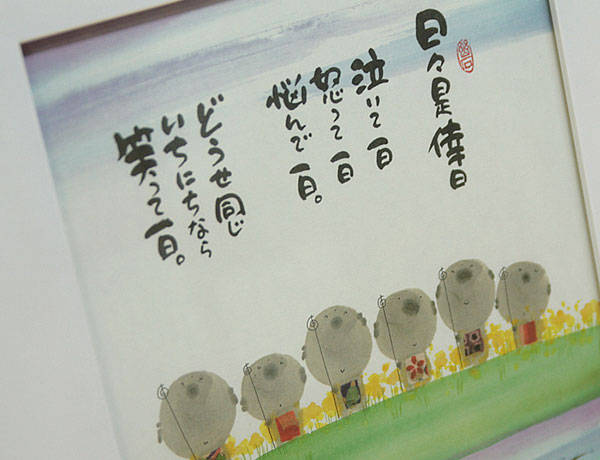 日々是倖日
泣いて一日
怒って一日
悩んで一日。
どうせ同じ
いちにちなら
笑って一日。